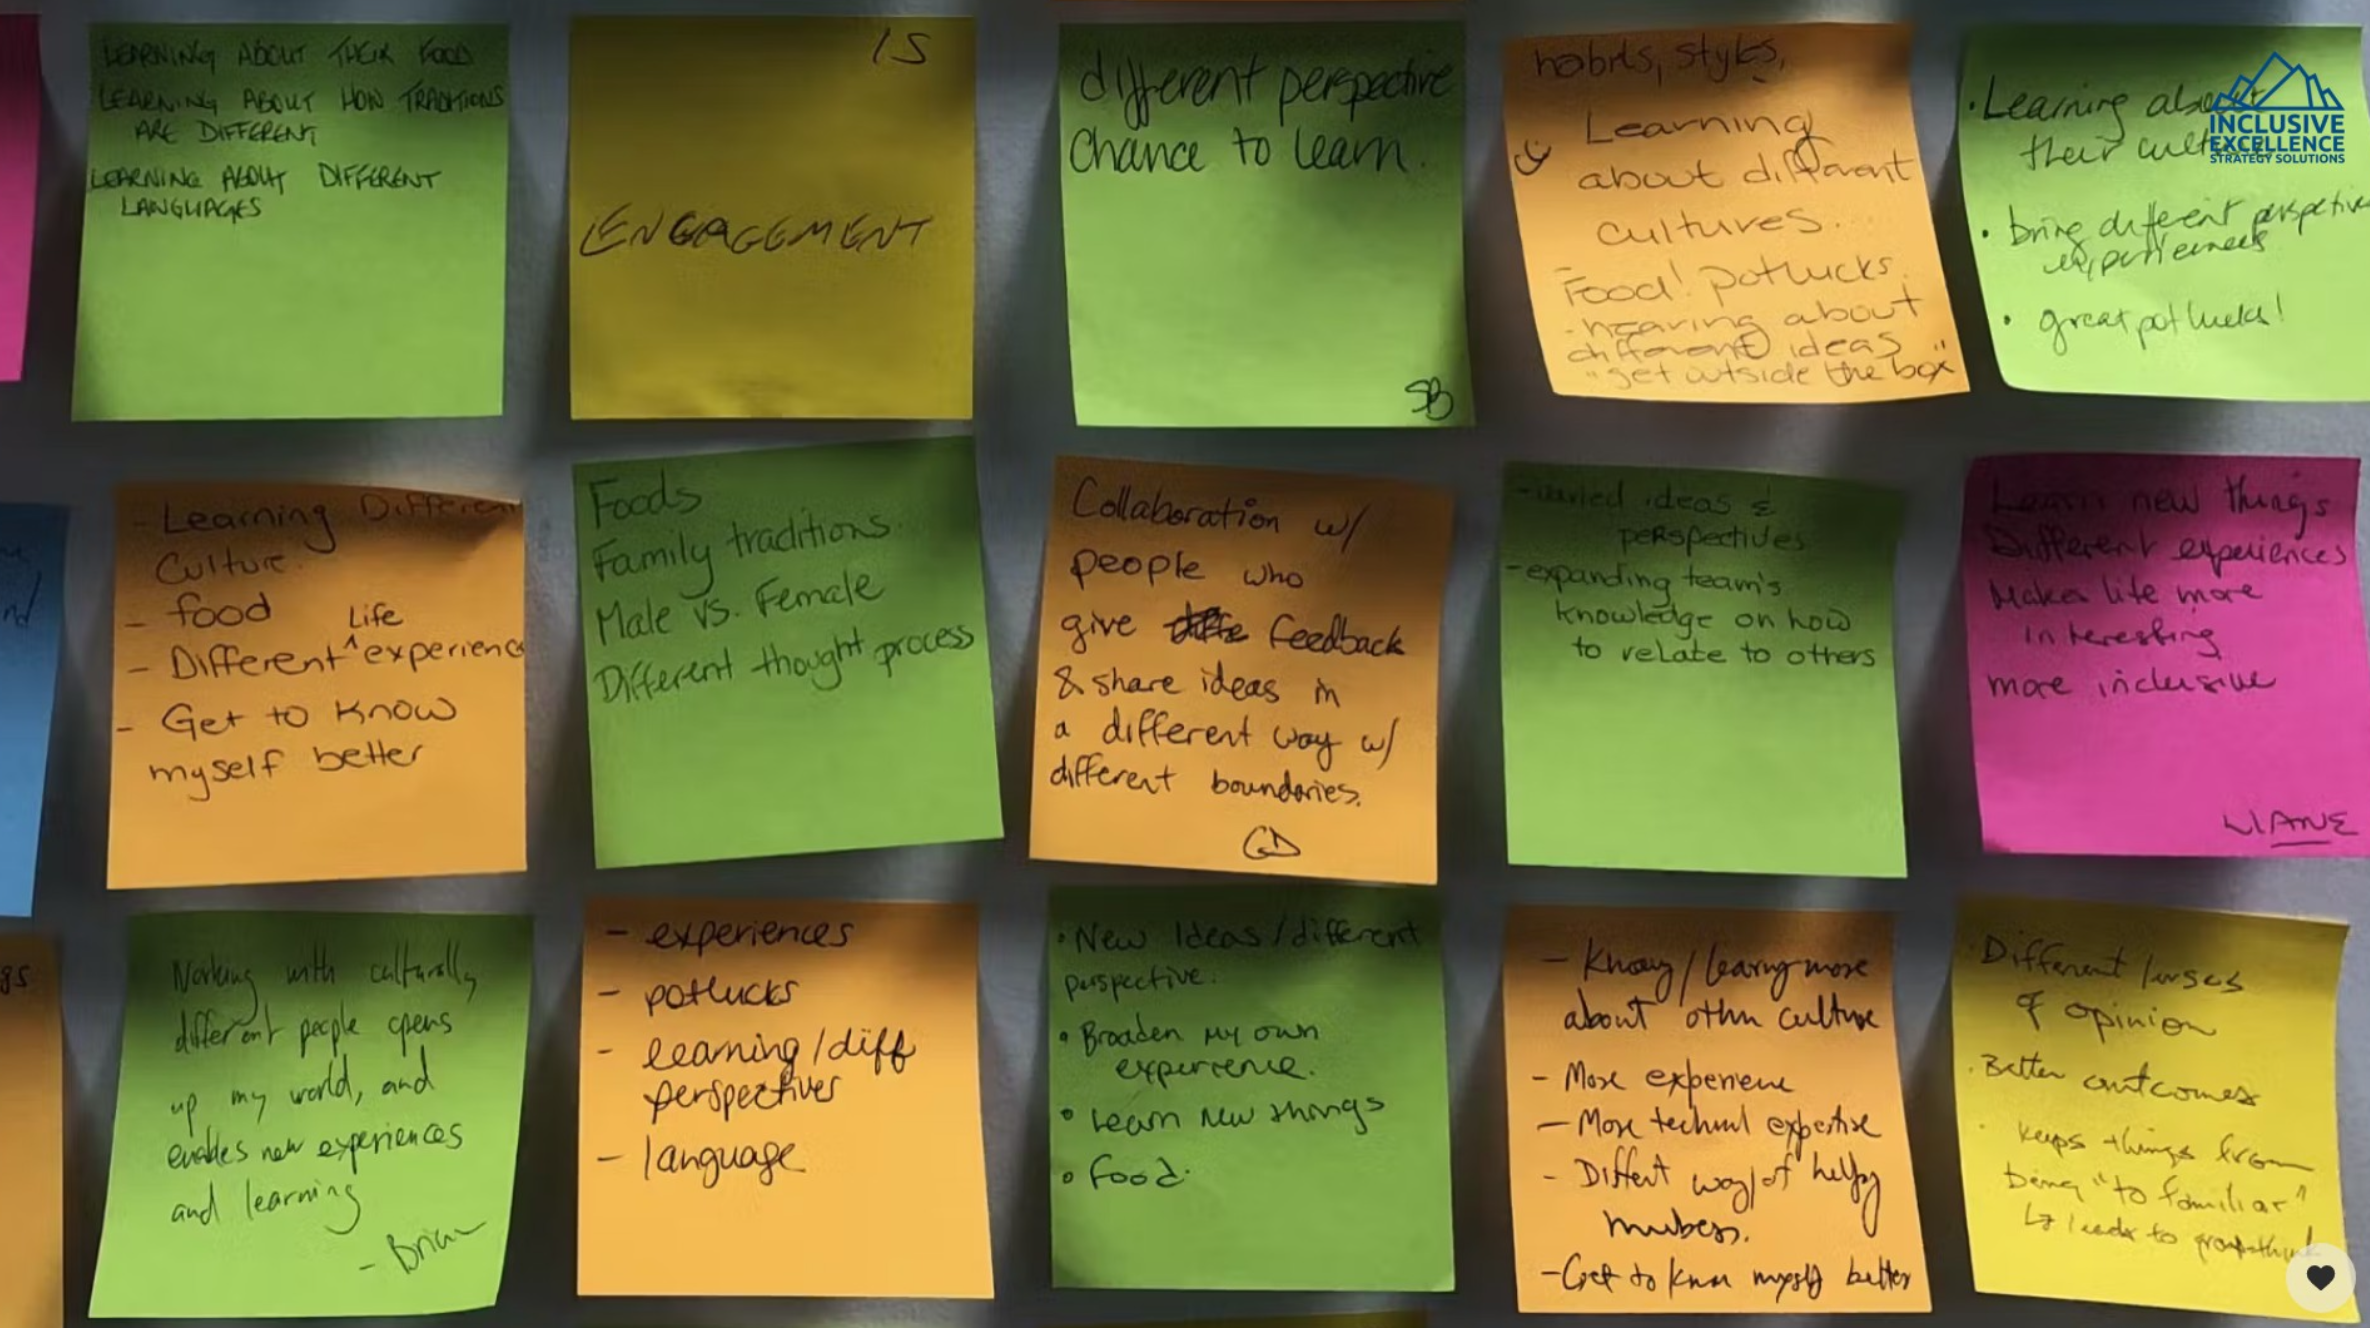 LEARNING ABOUT THEIR FOOD
LEARNING ABOUT HOW TRADITIONS
ARE DIFFERENT
LEARNING ABOUT DIFFERENT
LANGUAGES
IS
ENGAGEMENT
different perspective
Chance to learn.
SB
habits, styles,
Learning
about different
cultures.
Food! potlucks.
- hearing about
different ideas
"get outside the box"
• Learning about
their
• bring different
experiences
• great potlucks!
INCLUSIVE
EXCELLENCE
STRATEGY SOLUTIONS
- Learning
Culture.
- food
Life
- Different ^ experience
- Get to know
myself better
Foods
Family traditions
Male vs. Female
Different thought process
Collaboration w/
people who
give feedback
& share ideas in
a different way w/
different boundaries.
GD
- varied ideas &
perspectives
- expanding team's
knowledge on how
to relate to others
Learn new things
Different experiences
Makes life more
interesting
more inclusive
gs
Working with culturally
different people opens
up my world, and
enables new experiences
and learning
- Brian
- experiences
- potlucks
- learning/diff
perspectives
- language
• New Ideas/different
perspective.
• Broaden my own
experience.
• Learn new things
• Food.
- more
about other culture
- More experience
- More expertise
- of
- Get to know myself better
• Different lenses
of opinion
• Better outcomes
• keeps things from
being "to familiar"
↳ leads to